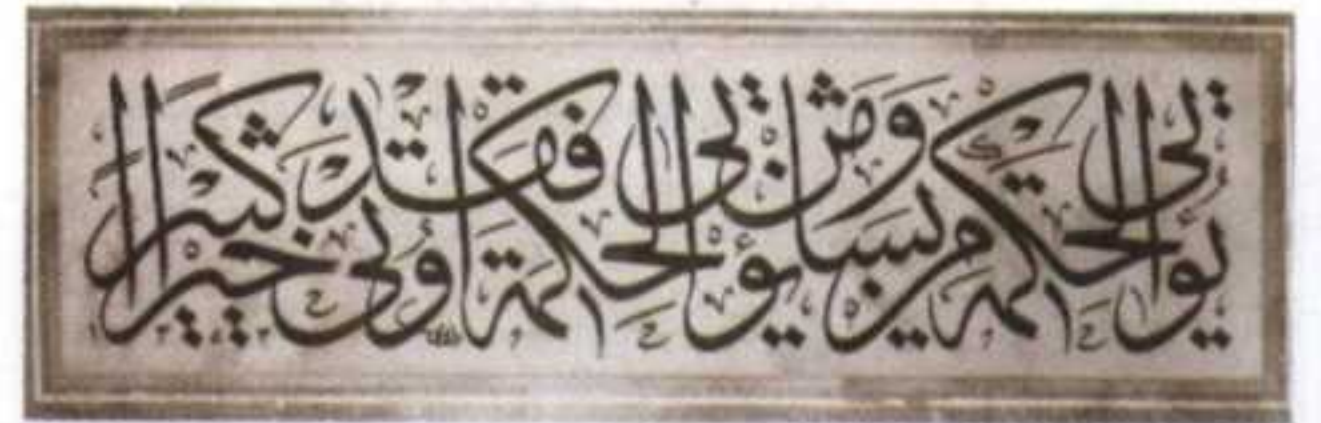 يُؤتى الحكمة من يشاء ومن يؤت الحكمة فقد أوتي خيرا كثيرا